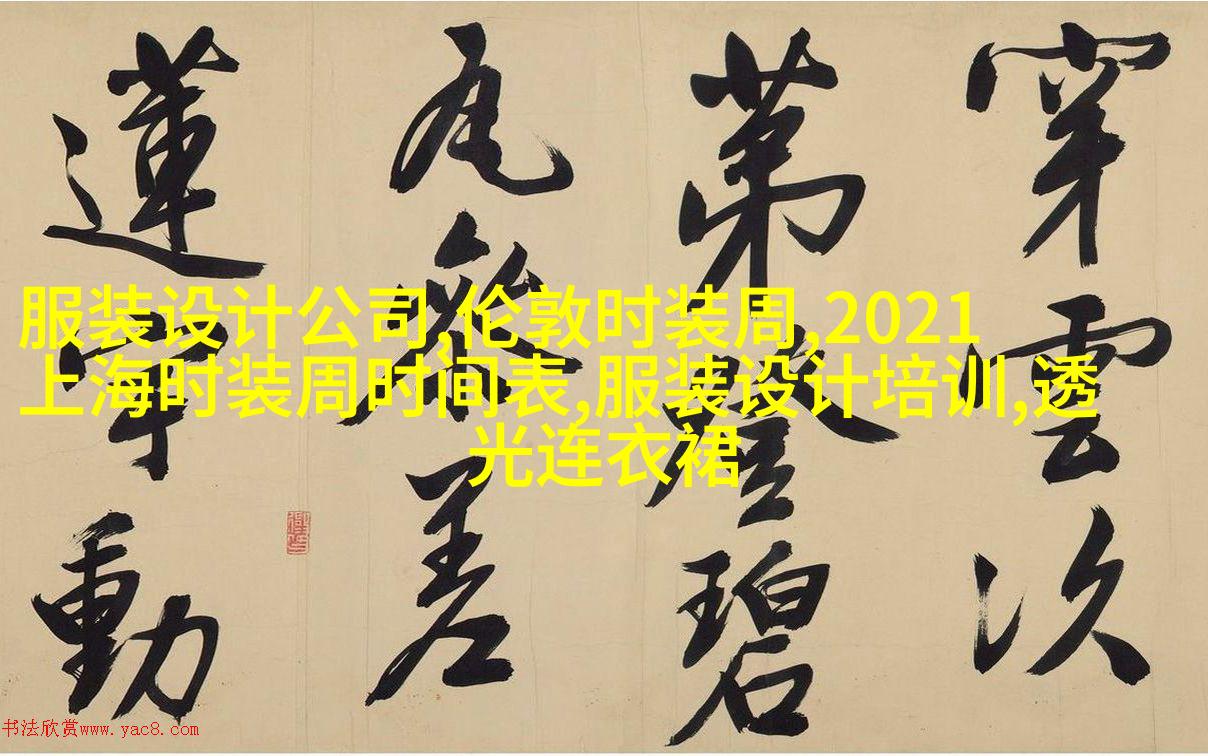 穿雲次
第 碧
瓦參差
蓮宇動
服装设计公司,伦敦时装周,2021
上海时装周时间表,服装设计培训,透
光连衣裙
书法欣赏www.yac8.com